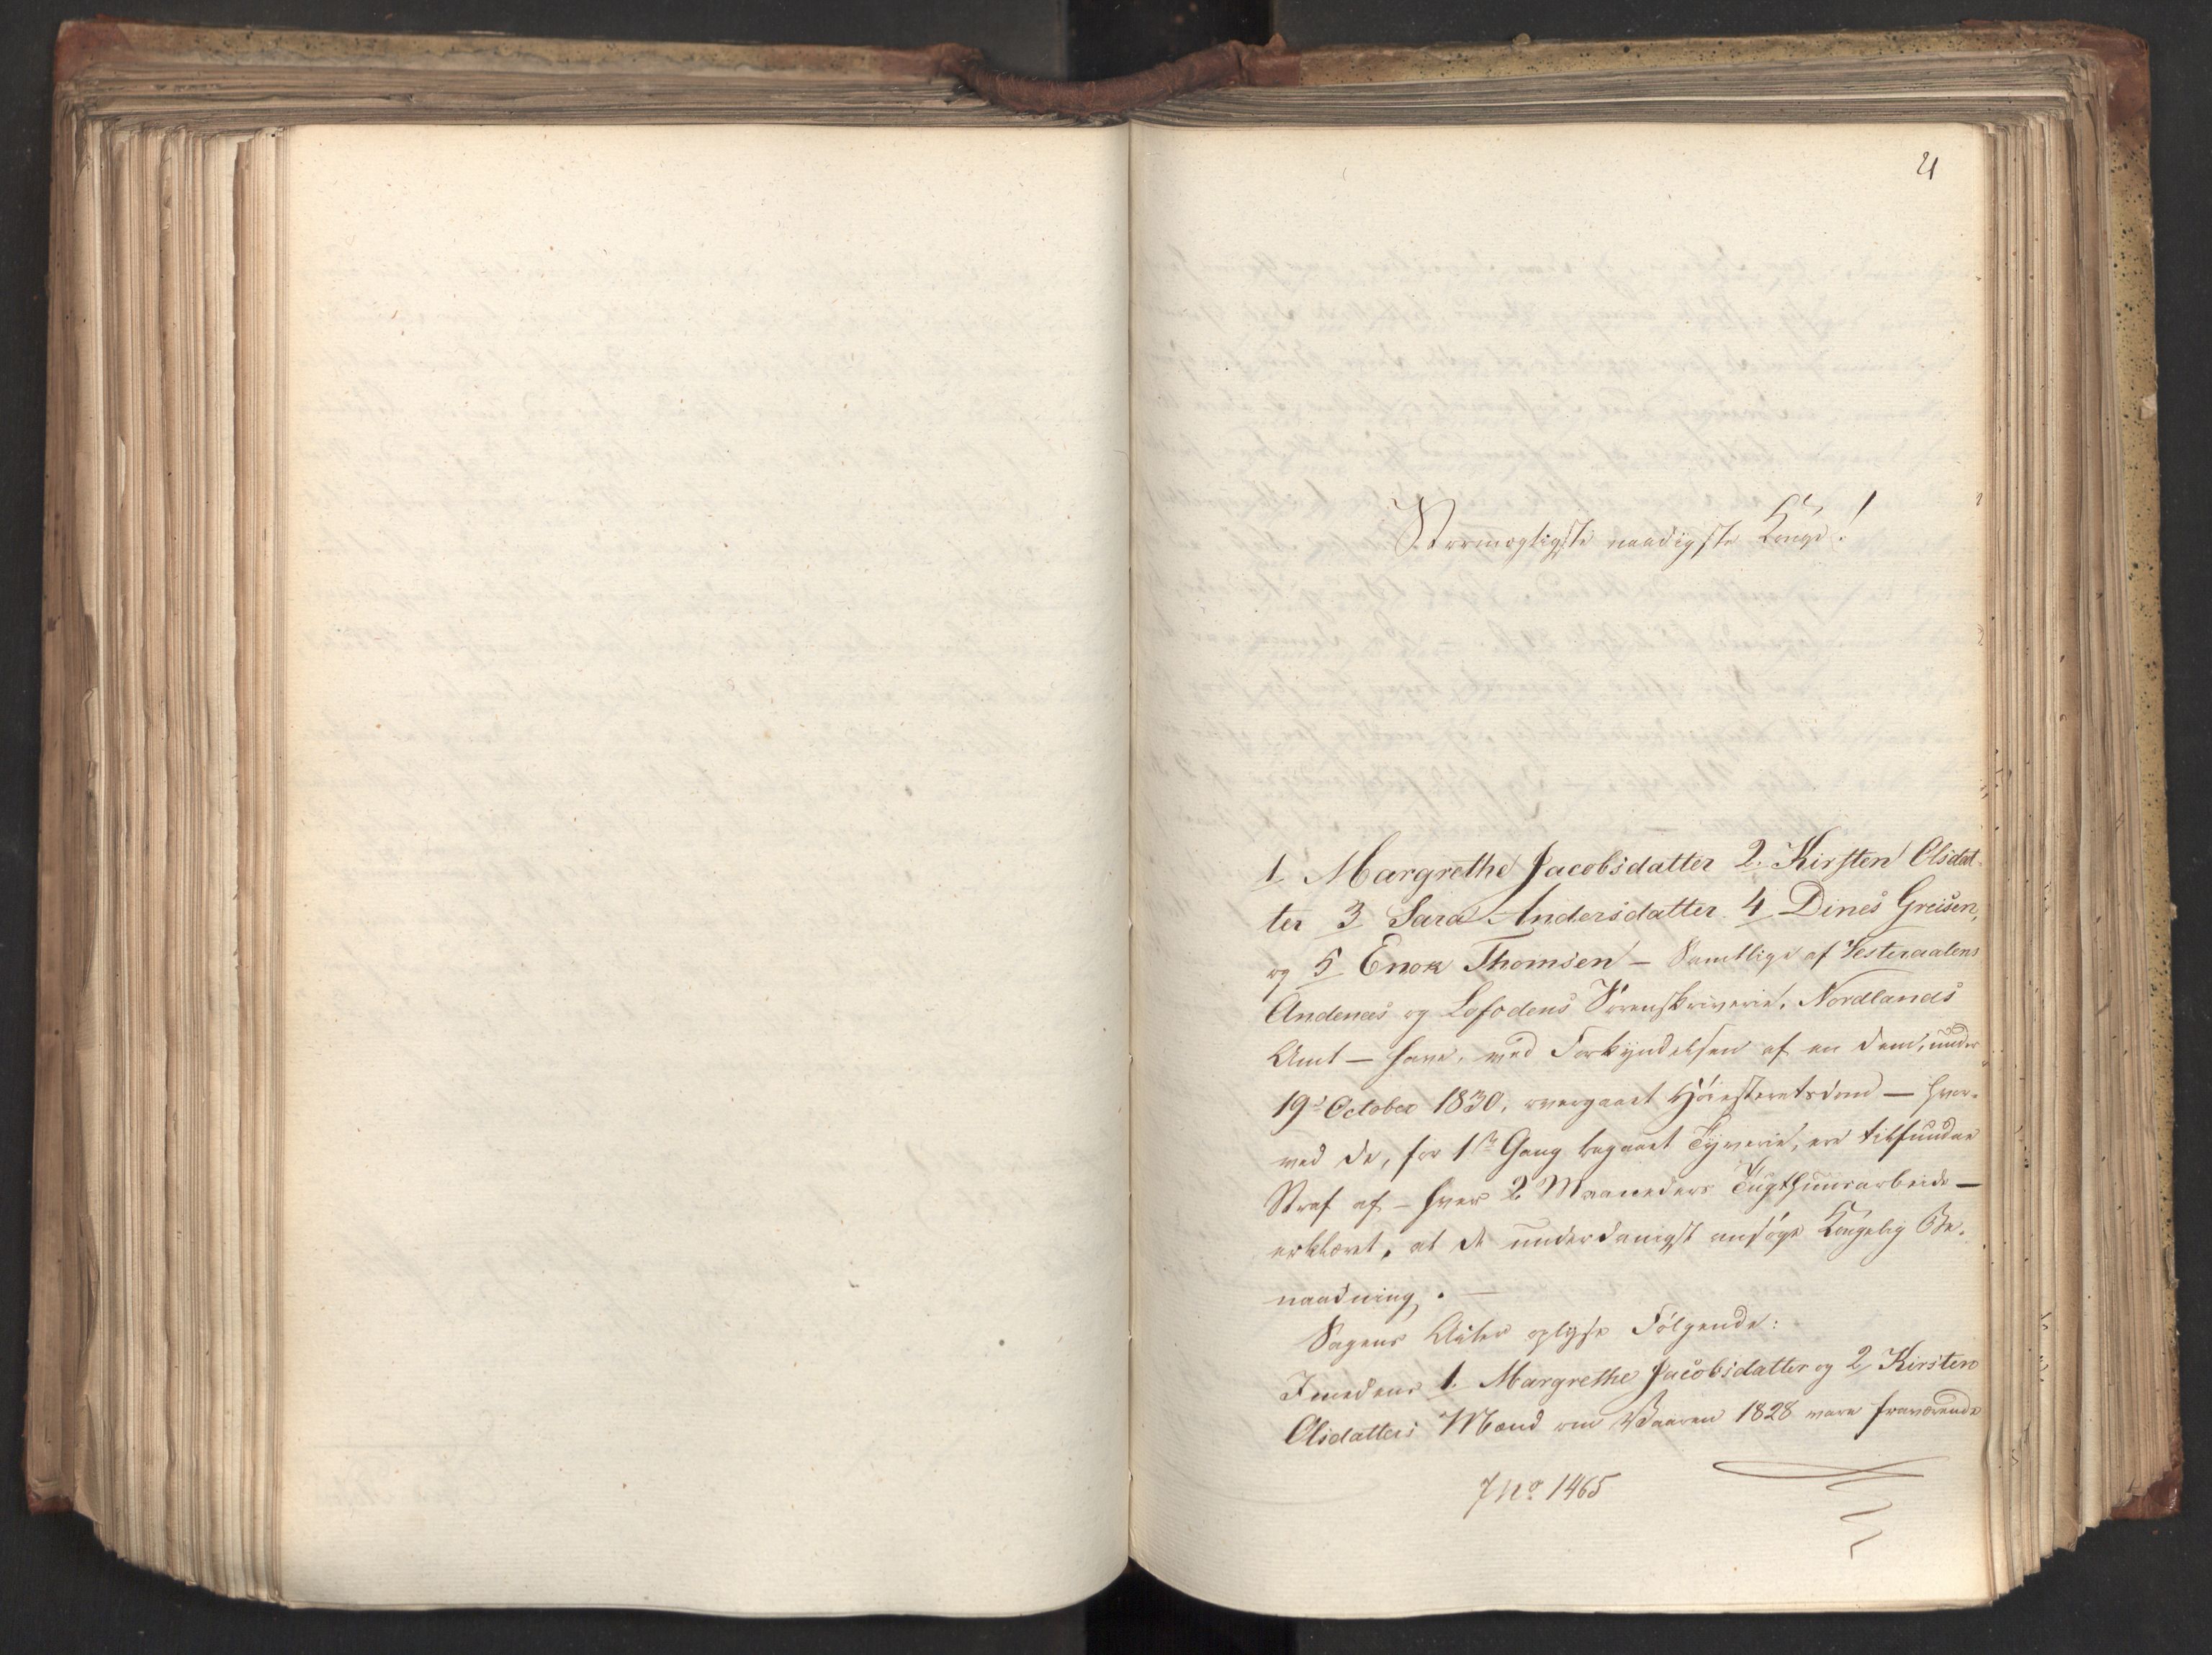 21
Stormægtigste naadigste Konge!
1 Margrethe Jacobsdatter 2. Kirsten Olsdat-
ter 3 Sara Andersdatter 4 Dines Greisen,
og 5 Enok Thomsen – Samtlige af Vesteraalens
Andenæs og Lofodens Sorenskriverie, Nordlands
Amt – have, ved Forkyndelsen af en dem, under
19de October 1830, overgaaet Høiesteretsdom – hvor-
ved de, for 1ste Gang begaaet Tyverie, ere tilfundne
Straf af – hver 2 Maaneders Tugthuusarbeide –
erklæret, at de underdanigst ansøge Kongelig Be-
naadning. –
Sagens Acter oplyse Følgende:
Imedens 1. Margrethe Jacobsdatter og 2 Kirsten
Olsdatters Mænd om Vaaren 1828 vare fraværende
No. 1465